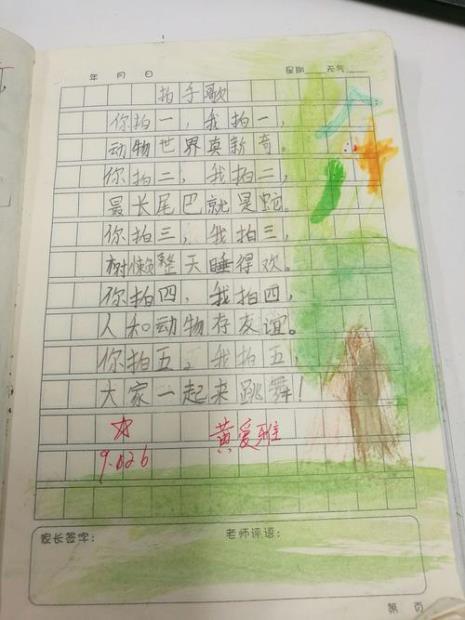 年 月 日 星期 天气
拍手歌
你拍一，我拍一，
动物世界真新奇。
你拍二，我拍二，
最长尾巴就是蛇。
你拍三，我拍三，
树懒整天睡得欢。
你拍四，我拍四，
人和动物存友谊。
你拍五，我拍五，
大家一起来跳舞！
黄爱雅
家长签字： 老师评语：
第 页